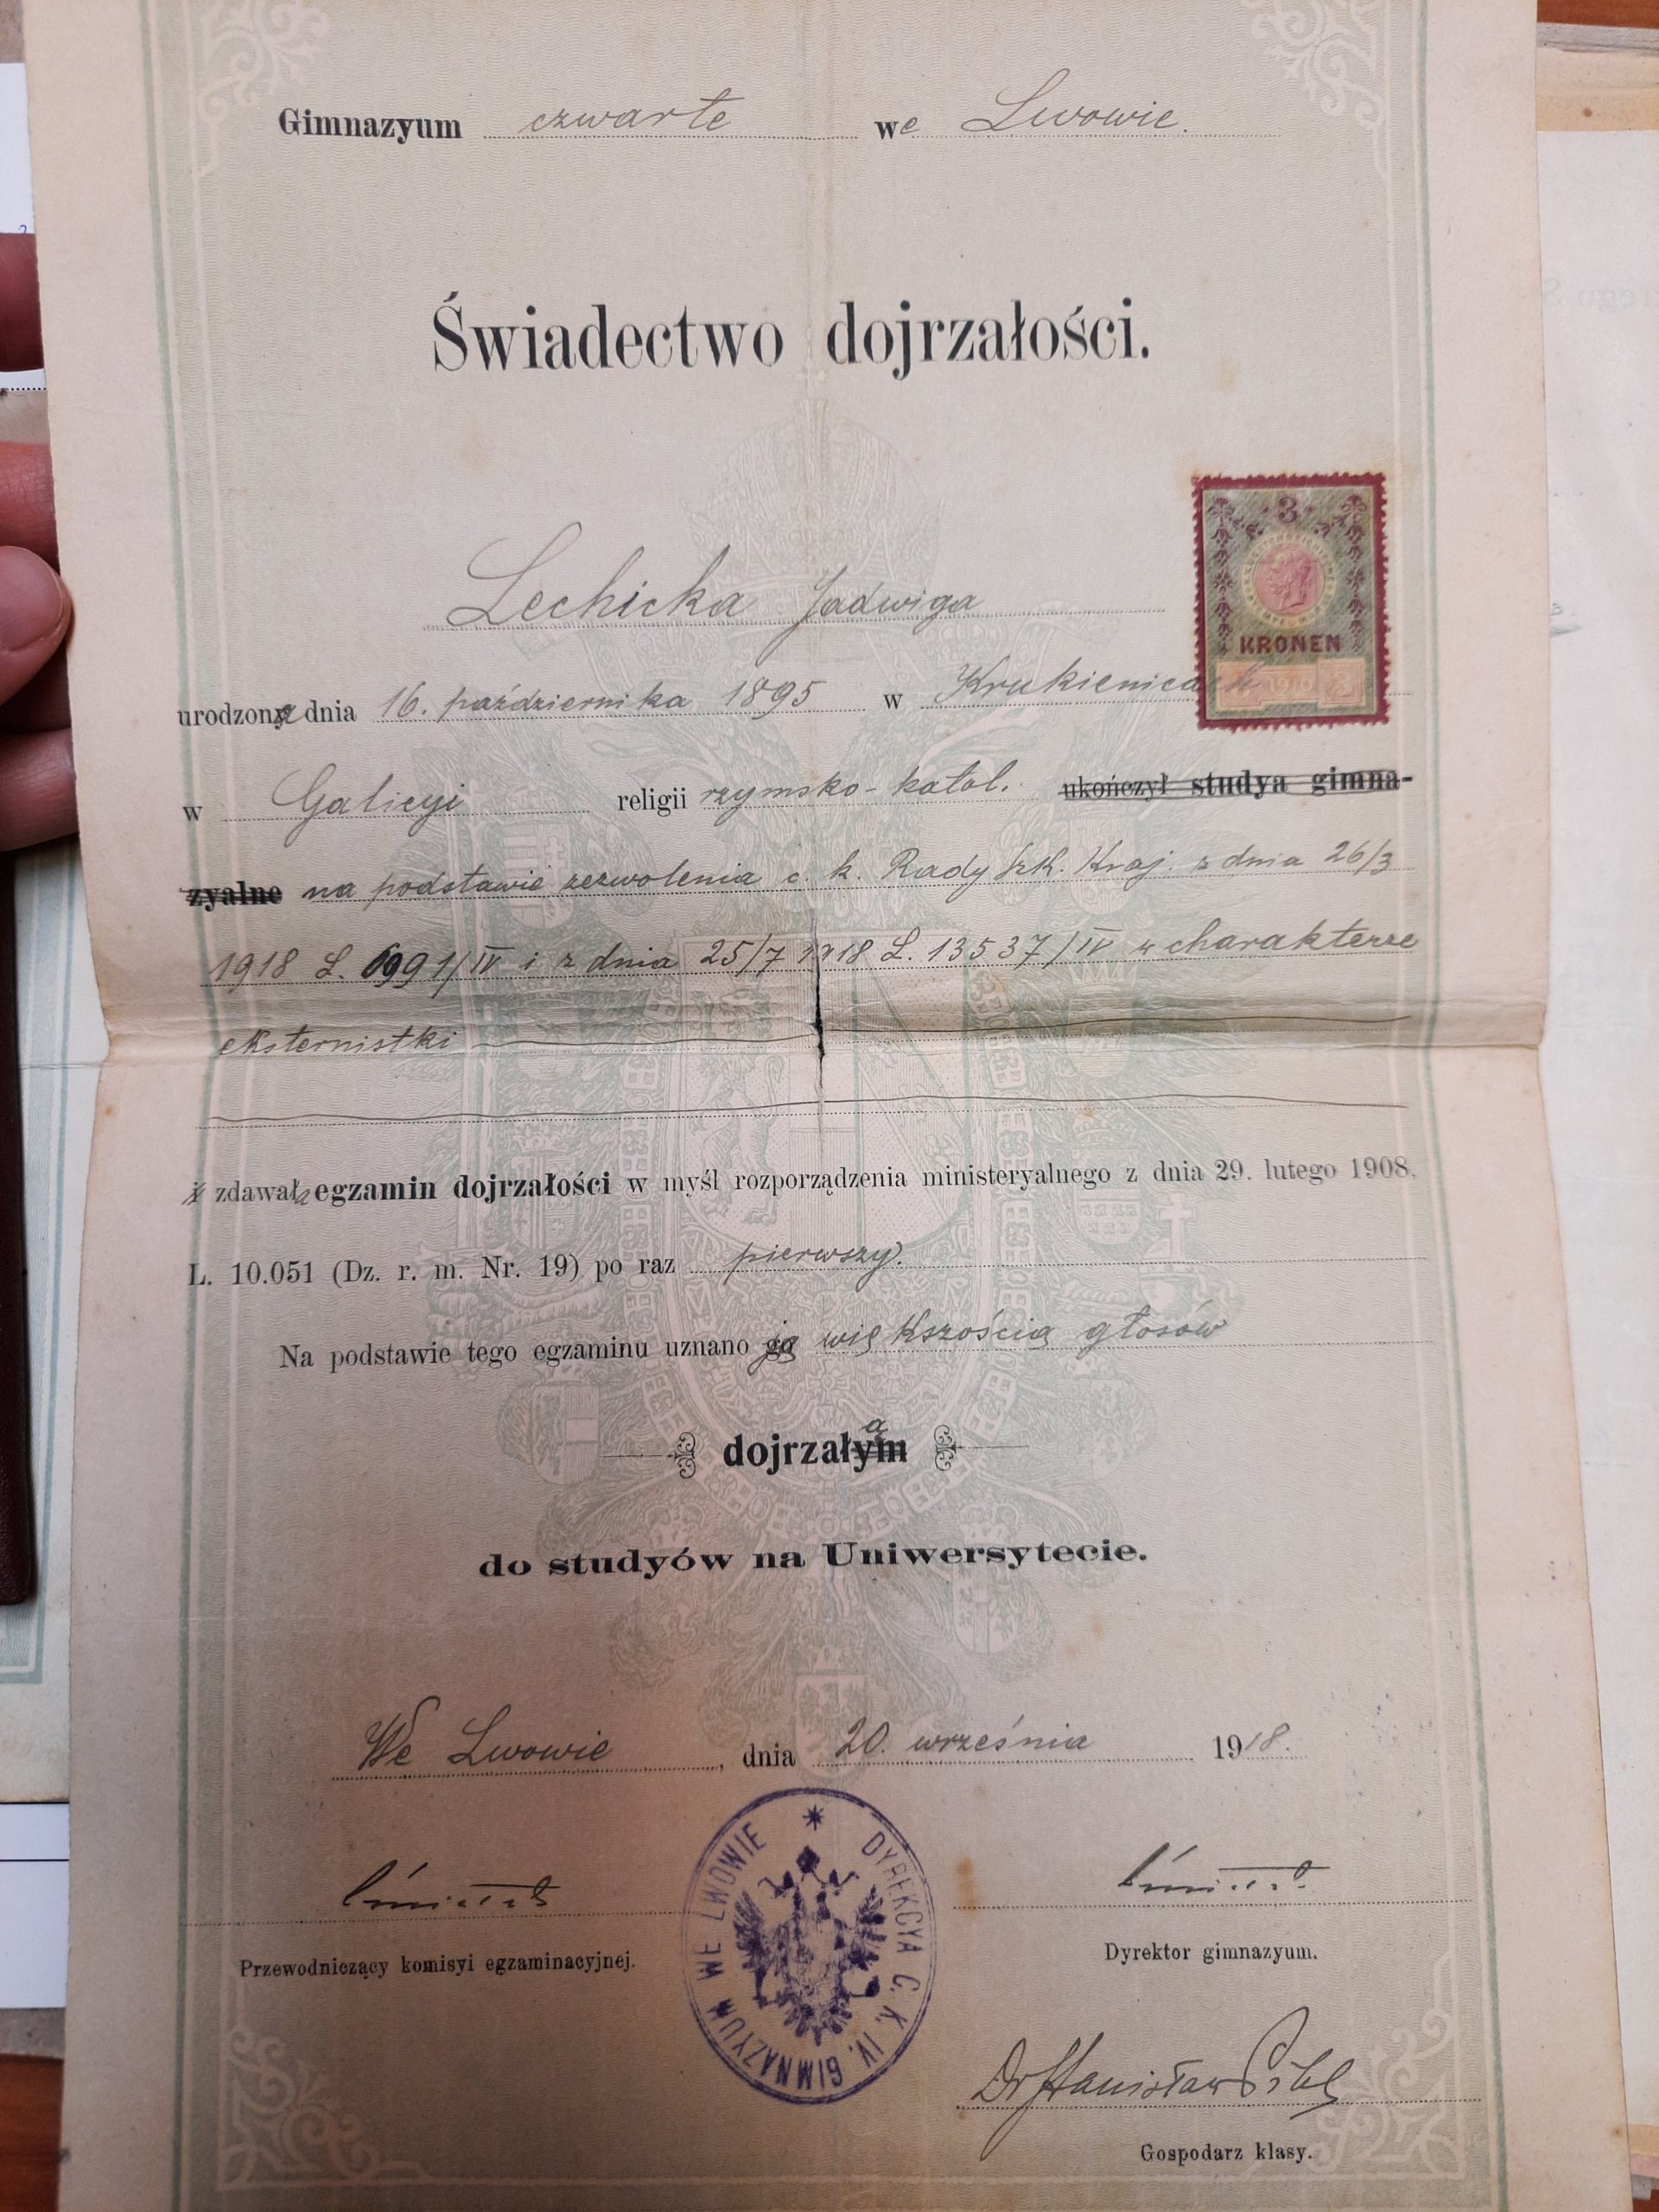 Gimnazyum czwarte we Lwowie.
Świadectwo dojrzałości.
3
KRONEN
1910
Lechicka Jadwiga
urodzona dnia 16. października 1895 w Krukienicach
w Galicyi religii rzymsko-katol. ukończył studya gimna-
zyalne na podstawie zezwolenia c. k. Rady szk. Kraj. z dnia 26/3
1918 L. 6991/IV i z dnia 25/7 1918 L. 13537/IV w charakterze
eksternistki
i zdawała egzamin dojrzałości w myśl rozporządzenia ministeryalnego z dnia 29. lutego 1908.
L. 10.051 (Dz. r. m. Nr. 19) po raz pierwszy.
Na podstawie tego egzaminu uznano ją większością głosów
dojrzałą
do studyów na Uniwersytecie.
We Lwowie, dnia 20. września 1918.
DYREKCYA C. K. IV. GIMNAZYUM WE LWOWIE
Przewodniczący komisyi egzaminacyjnej.
Dyrektor gimnazyum.
Dr Stanisław
Gospodarz klasy.